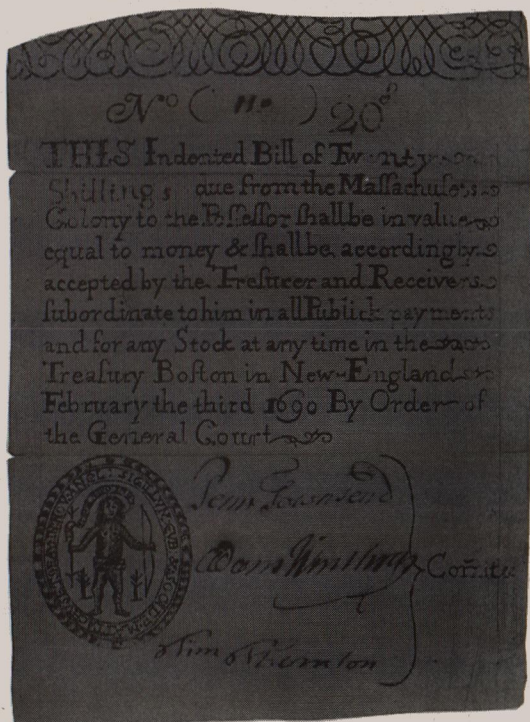 No ( 110 ) 20s
THIS Indented Bill of Twenty
Shillings due from the Maſſachuſets
Colony to the Poſſeſſor ſhall be in value
equal to money & ſhall be accordingly
accepted by the Treſurer and Receivers
ſubordinate to him in all Publick payments
and for any Stock at any time in the
Treaſury Boſton in New-England
February the third 1690 By Order of
the General Court
Penn Townsend
Adam Winthrop
Com̄itte
Tim Thornton